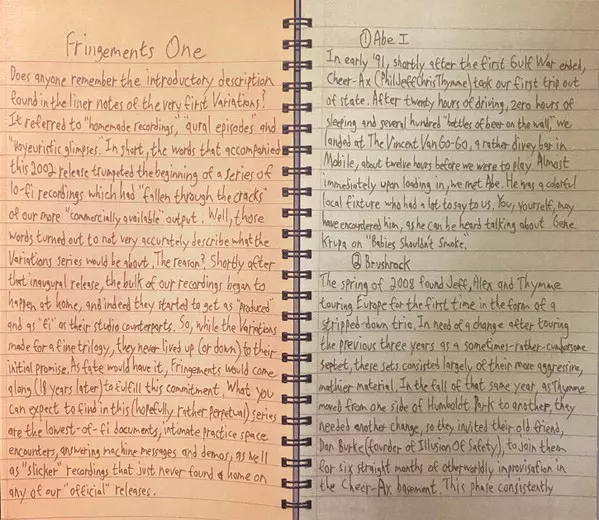 Fringements One
Does anyone remember the introductory description
found in the liner notes of the very first Variations?
It referred to "homemade recordings," "aural episodes" and
"voyeuristic glimpses." In short, the words that accompanied
this 2002 release trumpeted the beginning of a series of
lo-fi recordings which had "fallen through the cracks"
of our more "commercially available" output. Well, those
words turned out to not very accurately describe what the
Variations series would be about. The reason? Shortly after
that inaugural release, the bulk of our recordings began to
happen at home, and indeed they started to get as "produced"
and as "fi" as their studio counterparts. So, while the Variations
made for a fine trilogy, they never lived up (or down) to their
initial promise. As fate would have it, Fringements would come
along (18 years later) to fulfill this commitment. What you
can expect to find in this (hopefully rather perpetual) series
are the lowest-of-fi documents, intimate practice space
encounters, answering machine messages and demos, as well
as "slicker" recordings that just never found a home on
any of our "official" releases.
① Abe I
In early '91, shortly after the first Gulf War ended,
Cheer-Ax (PhilJeffChrisThymme) took our first trip out
of state. After twenty hours of driving, zero hours of
sleeping and several hundred "bottles of beer on the wall," we
landed at The Vincent Van Go-Go, a rather divey bar in
Mobile, about twelve hours before we were to play. Almost
immediately upon loading in, we met Abe. He was a colorful
local fixture who had a lot to say to us. You, yourself, may
have encountered him, as he can be heard talking about Gene
Krupa on "Babies Shouldn't Smoke."
② Brushrock
The spring of 2008 found Jeff, Alex and Thymme
touring Europe for the first time in the form of a
stripped-down trio. In need of a change after touring
the previous three years as a sometimes-rather-cumbersome
septet, these sets consisted largely of their more aggressive,
mathier material. In the fall of that same year, as Thymme
moved from one side of Humboldt Park to another, they
needed another change, so they invited their old friend,
Dan Burke (founder of Illusion Of Safety), to join them
for six straight months of otherworldly improvisation in
the Cheer-Ax basement. This phase consistently